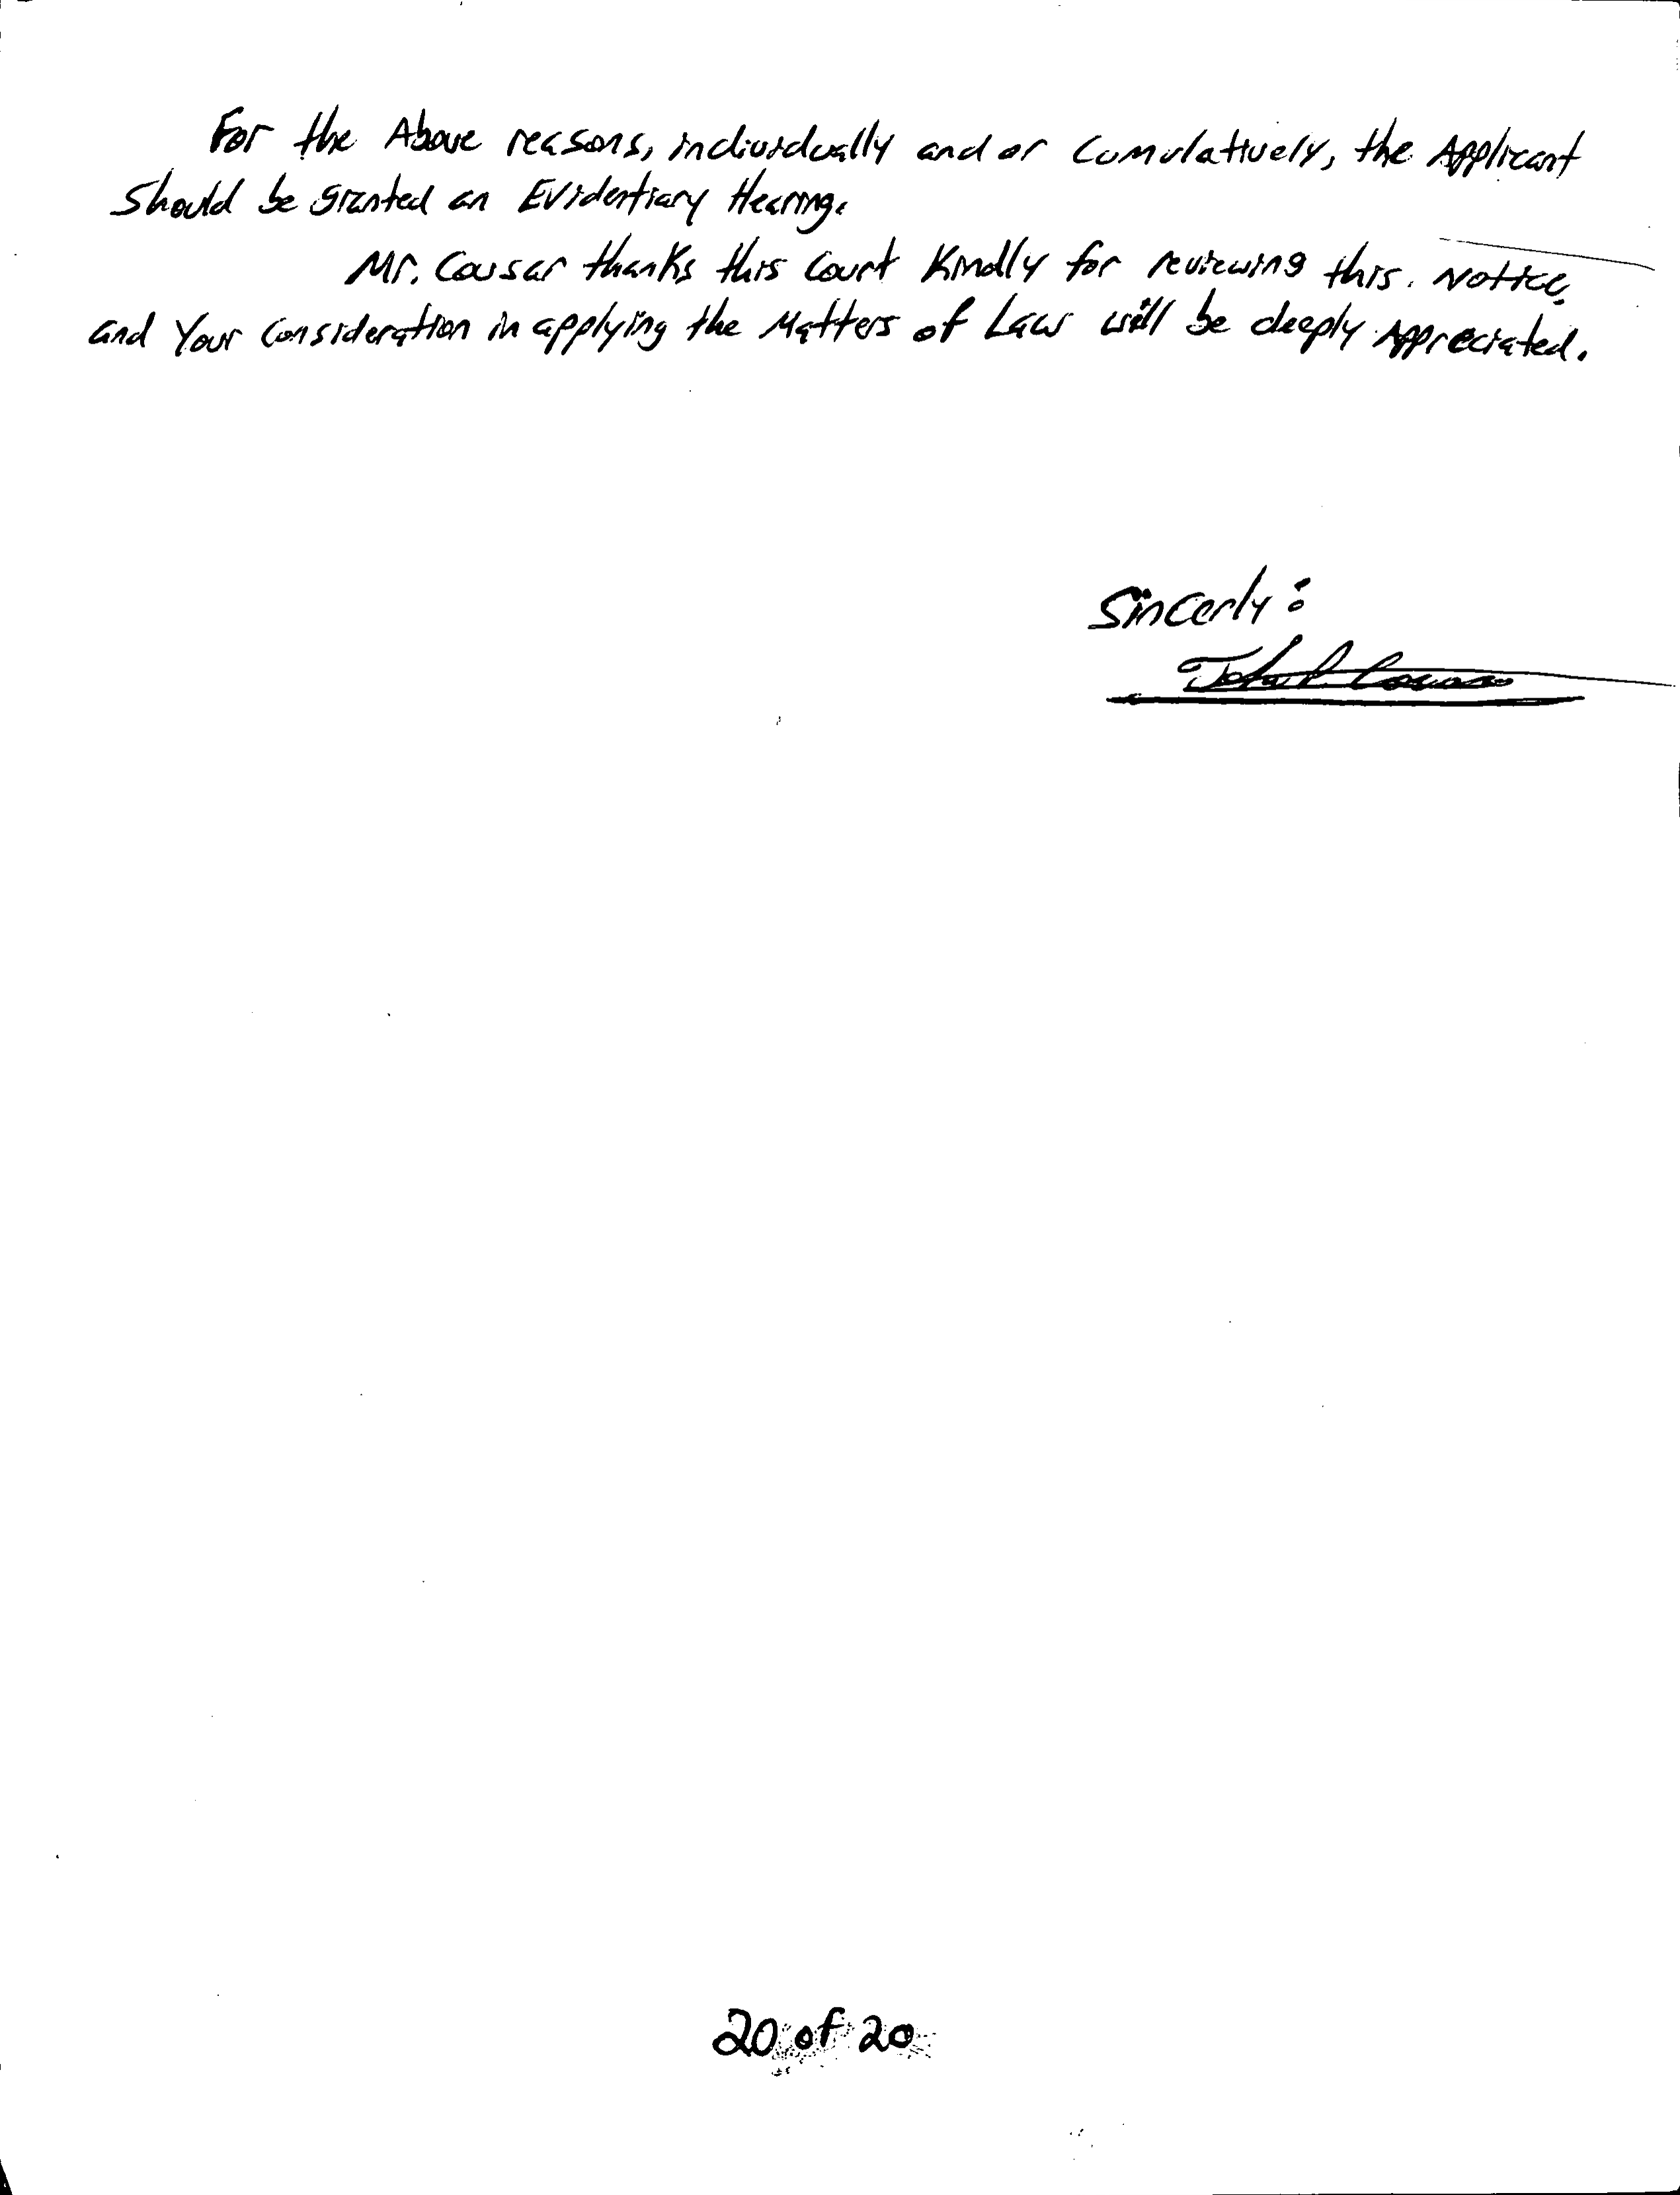 For the Above reasons, individually and or Cumulatively, the Applicant
Should be granted an Evidentiary Hearing.
Mr. Cousar thanks this Court Kindly for reviewing this. Notice,
and Your Consideration in applying the Matters of Law will be deeply Appreciated.
Sincerly:
20 of 20